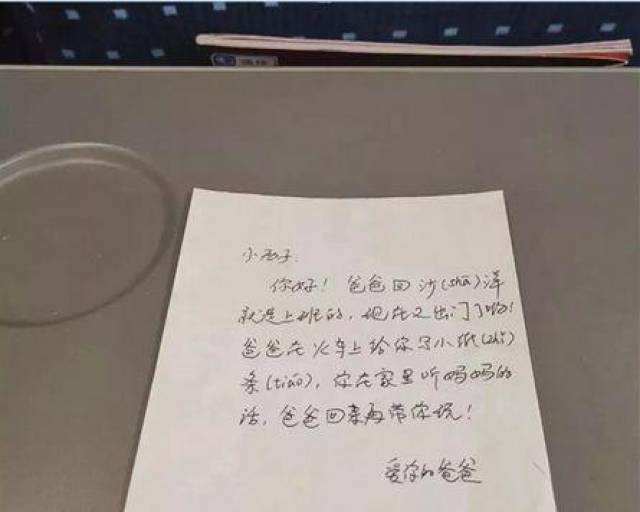 小西子:
你好！爸爸回沙(shā)洋
就是上班的，现在又出门了哟！
爸爸在火车上给你写小纸(zhǐ)
条(tiáo)，你在家里听妈妈的
话，爸爸回来再带你玩！
爱你的爸爸